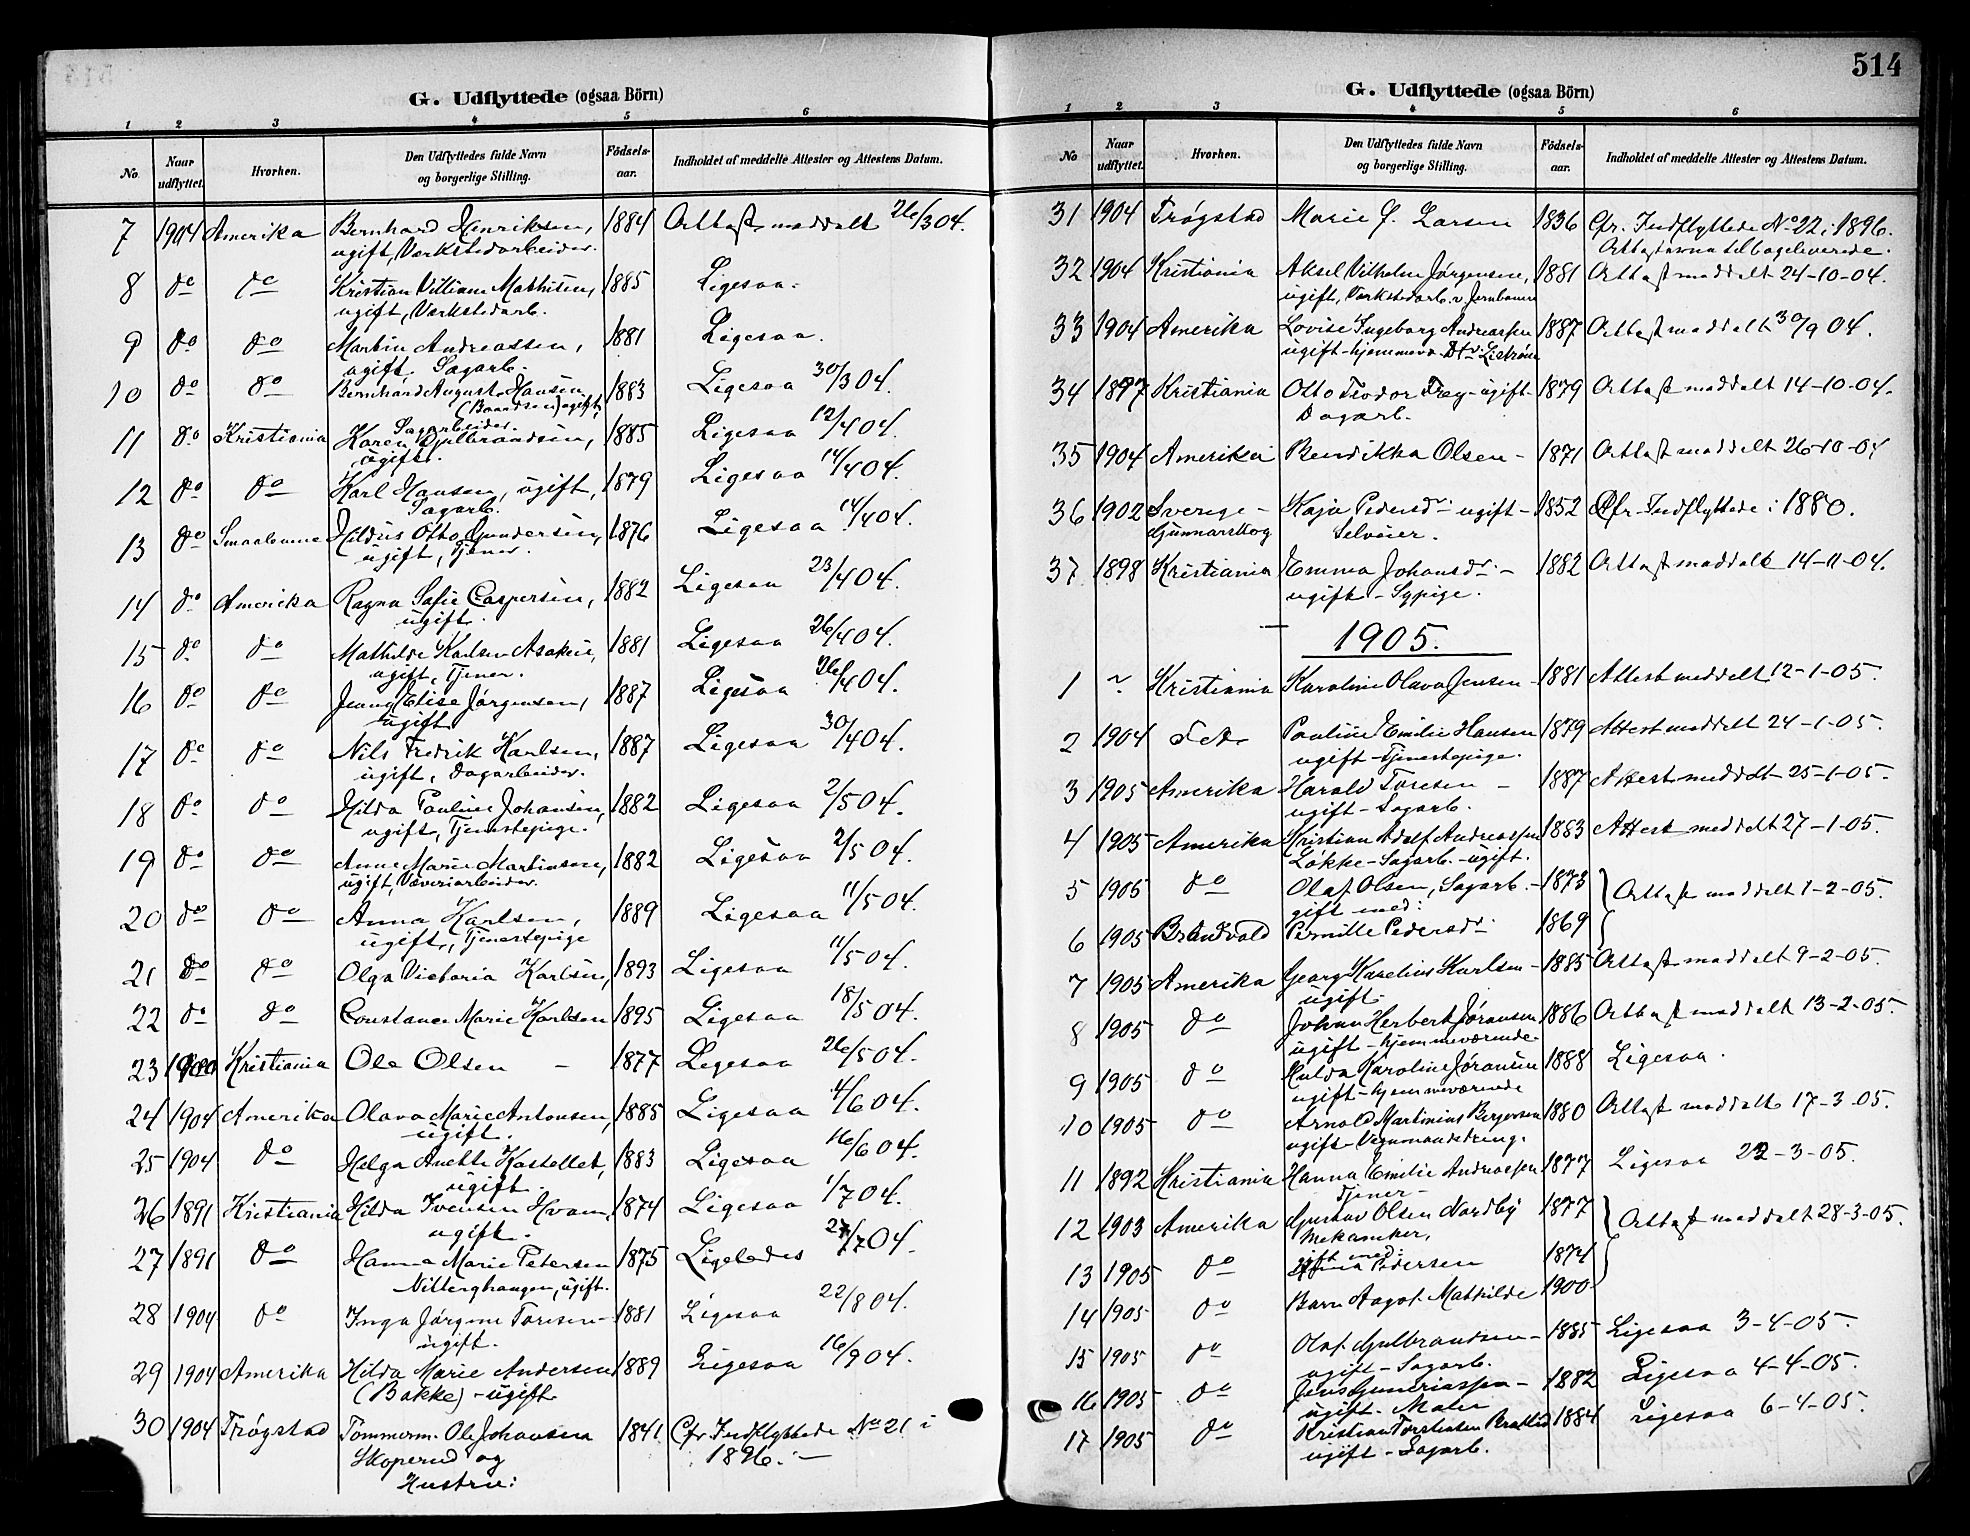 G. Udflyttede (ogsaa Börn)
1 2 3 4 5 6
No Naar udflyttet. Hvorhen. Den Udflyttedes fulde Navn og borgerlige Stilling. Födsels-aar. Indholdet af meddelte Attester og Attestens Datum.
7 1904 Amerika Bernhard Henriksen, 1884 Attest meddelt 26/3 04.
ugift, Verkstedarbeider.
8 do do Kristian Villiam Mathisen, 1885 Ligesaa.
ugift, Verkstedarb.
9 do do Martin Andreassen, 1881 Ligesaa.
ugift Sagarb.
10 do do Bernhard August Hansen 1883 Ligesaa 30/3 04.
(Baardsen) ugift,
Sagarbeider.
11 do Kristiania Karen Gulbrandsen, 1885 Ligesaa 12/4 04.
ugift.
12 do do Karl Hansen, ugift, 1879 Ligesaa 14/4 04.
Sagarb.
13 do Smaalenene Hildus Otto Gundersen, 1876 Ligesaa 14/4 04.
ugift, Tjener.
14 do Amerika Ragna Sofie Caspersen, 1882 Ligesaa 23/4 04.
ugift.
15 do do Mathilde Karlsen Asakeie, 1881 Ligesaa 26/4 04.
ugift, Tjener.
16 do do Jenny Elise Jørgensen, 1887 Ligesaa 26/4 04.
ugift
17 do do Nils Fredrik Karlsen, 1887 Ligesaa 30/4 04.
ugift, Dagarbeider.
18 do do Hilda Pauline Johansen, 1882 Ligesaa 2/5 04.
ugift, Tjenestepige.
19 do do Anne Marie Martinsen, 1882 Ligesaa 2/5 04.
ugift, Væveriarbeider.
20 do do Anna Karlsen, 1889 Ligesaa 11/5 04.
ugift, Tjenestepige
21 do do Olga Victoria Karlsen, 1893 Ligesaa 11/5 04.
22 do do Constance Marie Karlsen 1895 Ligesaa 18/5 04.
23 Kristiania Ole Olsen - 1877 Ligesaa 26/5 04.
24 1904 Amerika Olava Marie Antonsen, 1885 Ligesaa 4/6 04.
ugift.
25 1904 do Helga Anette Kastellet, 1883 Ligesaa 16/6 04.
ugift.
26 1891 Kristiania Hilda Iversen Hvam, 1874 Ligesaa 1/7 04.
ugift.
27 1891 do Hanna Marie Petersen 1875 Ligeledes 27/7 04.
Nitterghaugen, ugift.
28 1904 do Inga Jørgine Toresen - 1881 Ligesaa 22/8 04.
ugift.
29 1904 Amerika Hilda Marie Andersen 1889 Ligesaa 16/9 04.
(Bakke) - ugift
30 1904 Trøgstad Tömmerm. Ole Johansen 1841. Cfr Indflyttede No 21 i
Skoperud og 1896. -
Hustru:
514
G. Udflyttede (ogsaa Börn)
1 2 3 4 5 6
No Naar udflyttet. Hvorhen. Den Udflyttedes fulde Navn og borgerlige Stilling. Födsels-aar. Indholdet af meddelte Attester og Attestens Datum.
31 1904 Trøgstad Marie J. Larsen 1836 Cfr. Indflyttede No 22 i 1896.
Attesterna tilbageleverede.
32 1904 Kristiania Aksel Vilhelm Jørgensen, 1881 Attest meddelt 24-10-04.
ugift, Verkstedarb. v. Jernbanen
33 1904 Amerika Lovise Ingeborg Andreassen 1887 Attest meddelt 30/9 04.
ugift - hjemmev.
34 1897 Kristiania Otto Teodor Frey - ugift - 1879 Attest meddelt 14-10-04.
Dagarb.
35 1904 Amerika Bendikka Olsen - 1871 Attest meddelt 26-10-04
36 1902 Sverige - Kaja Pedersdr. ugift - 1852 Cfr. Indflyttede i 1880.
Gunnarskog Selveier.
37. 1898 Kristiania Emma Johansdr. - 1882 Attest meddelt 14-11-04.
ugift - Sypige.
1905.
1 Kristiania Karoline Olava Jensen - 1881 Attest meddelt 12-1-05.
2 1904 Fet. Pauline Emilie Hansen 1879 Attest meddelt 24-1-05.
ugift - Tjenestepige.
3 1905 Amerika Harald Toresen - 1887 Attest meddelt 25-1-05.
ugift - Sagarb.
4 1905 Amerika Kristian Adolf Andreassen 1883 Attest meddelt 27-1-05.
Løkke - Sagarb. - ugift.
5 1905 do Olaf Olsen, Sagarb. - 1873 Attest meddelt 1-2-05.
gift med:
6 1905 Brandvold Pernille Pedersdr. 1869
7 1905 Amerika Georg Karelius Karlsen - 1885 Attest meddelt 9-2-05.
ugift.
8 1905 do Johan Herbert Jøransen 1886 Attest meddelt 13-2-05.
ugift - hjemmeværende.
9 1905 do Hulda Karoline Jøransen 1888 Ligesaa.
ugift - hjemmeværende
10 1905 do Arnold Martinius Bergersen 1880 Attest meddelt 17-3-05.
ugift -
11 1892 Kristiania Hanna Emilie Andreassen 1877 Ligesaa 22-3-05.
Tjener -
12 1903 Amerika Gustav Olsen Nordby 1877 Attest meddelt 28-3-05.
Mekaniker,
gift med:
13 1905 do Pedersen 1874
14 1905 do Barn Aagot Mathilde 1900
15 1905 do Olaf Gulbrandsen - 1885 Ligesaa 3-4-05.
ugift - Sagarb.
16 1905 do Jens Guneriussen - 1882 Ligesaa 4-4-05.
ugift - Maler
17 1905 do Kristian Torstensen Bratlid 1884 Ligesaa 6-4-05.
ugift - Sagarb.